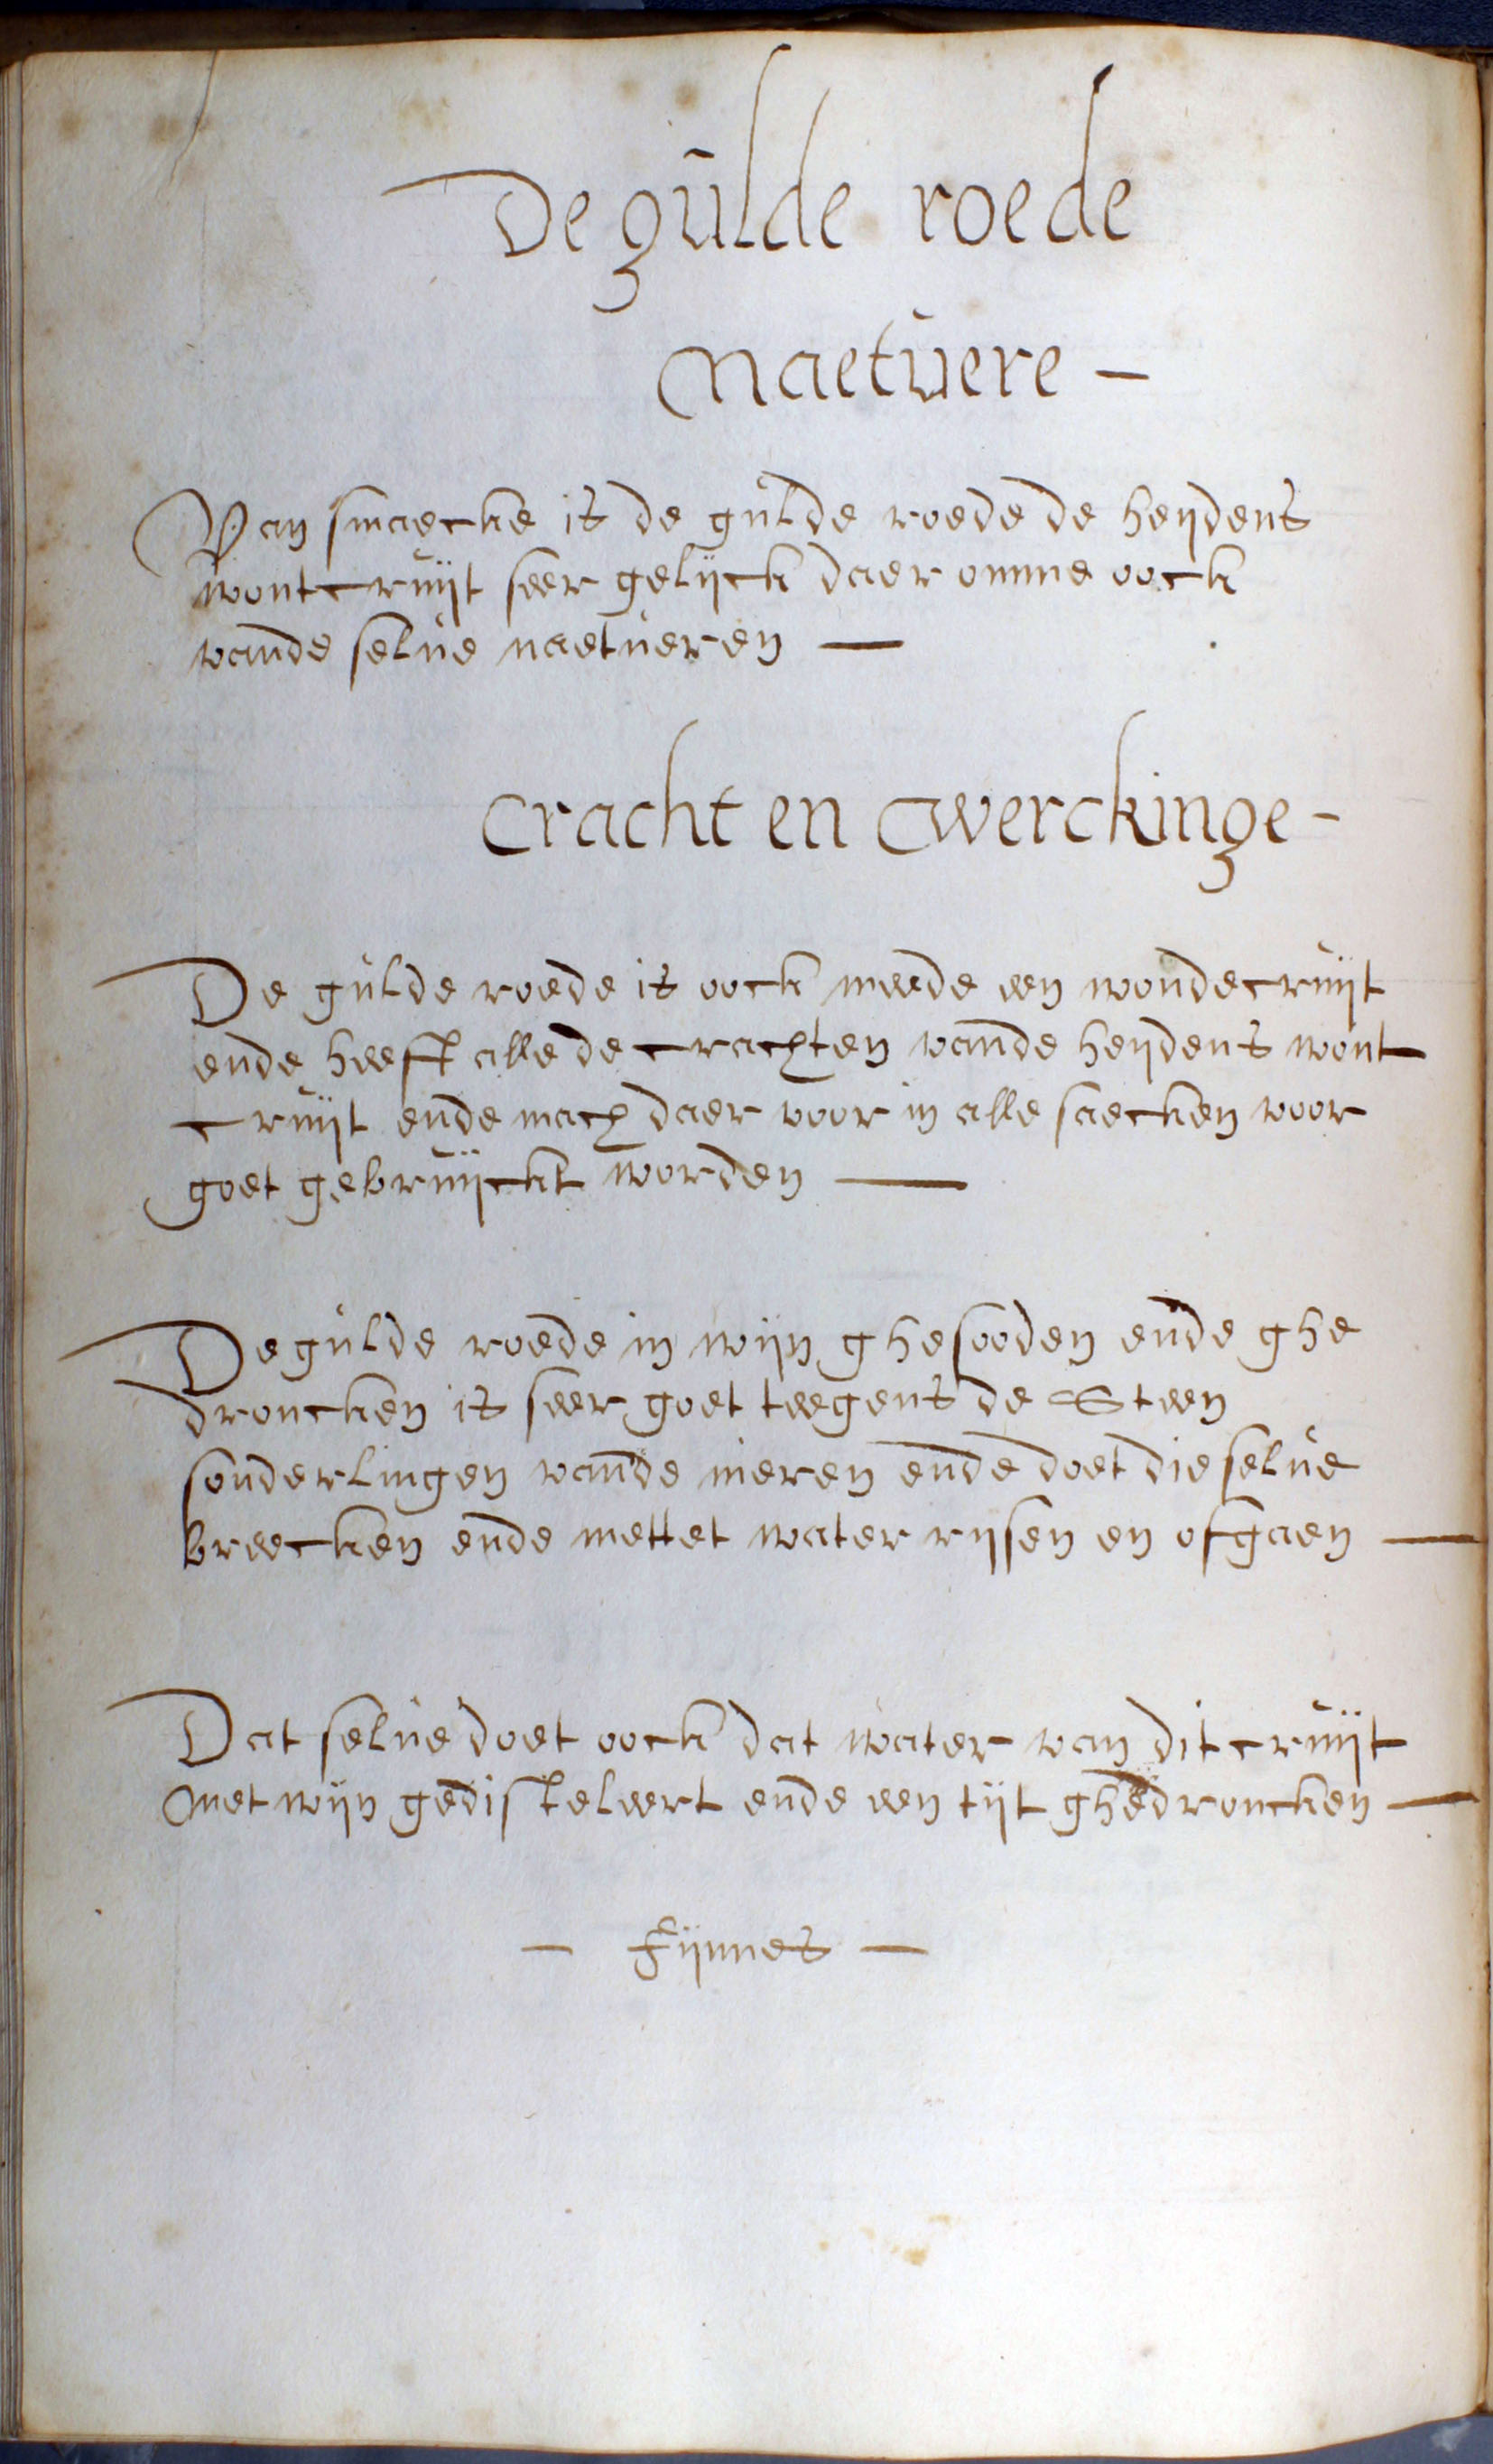 De gulde roede
Naetuere -
Van smaecke is de gulde roede de heijdens
wontcruijt seer gelijck daer omme oock
vande selue naetueren —
Cracht en Werckinge -
De gulde roede is oock meede een wondecruijt
ende heeft alle de crachten vande heijdens wont
cruijt ende mach daer voor in alle saecken voor
goet gebruijckt worden —
De gulde roede in wijn ghesooden ende ghe
droncken is seer goet teegens de Steen
sonderlingen vande nieren ende doet die selue
breecken ende mettet water rijsen en ofgaen —
Dat selue doet oock dat water van dit cruijt
Met wijn gedisteleert ende een tijt ghedroncken —
— fijnnes —